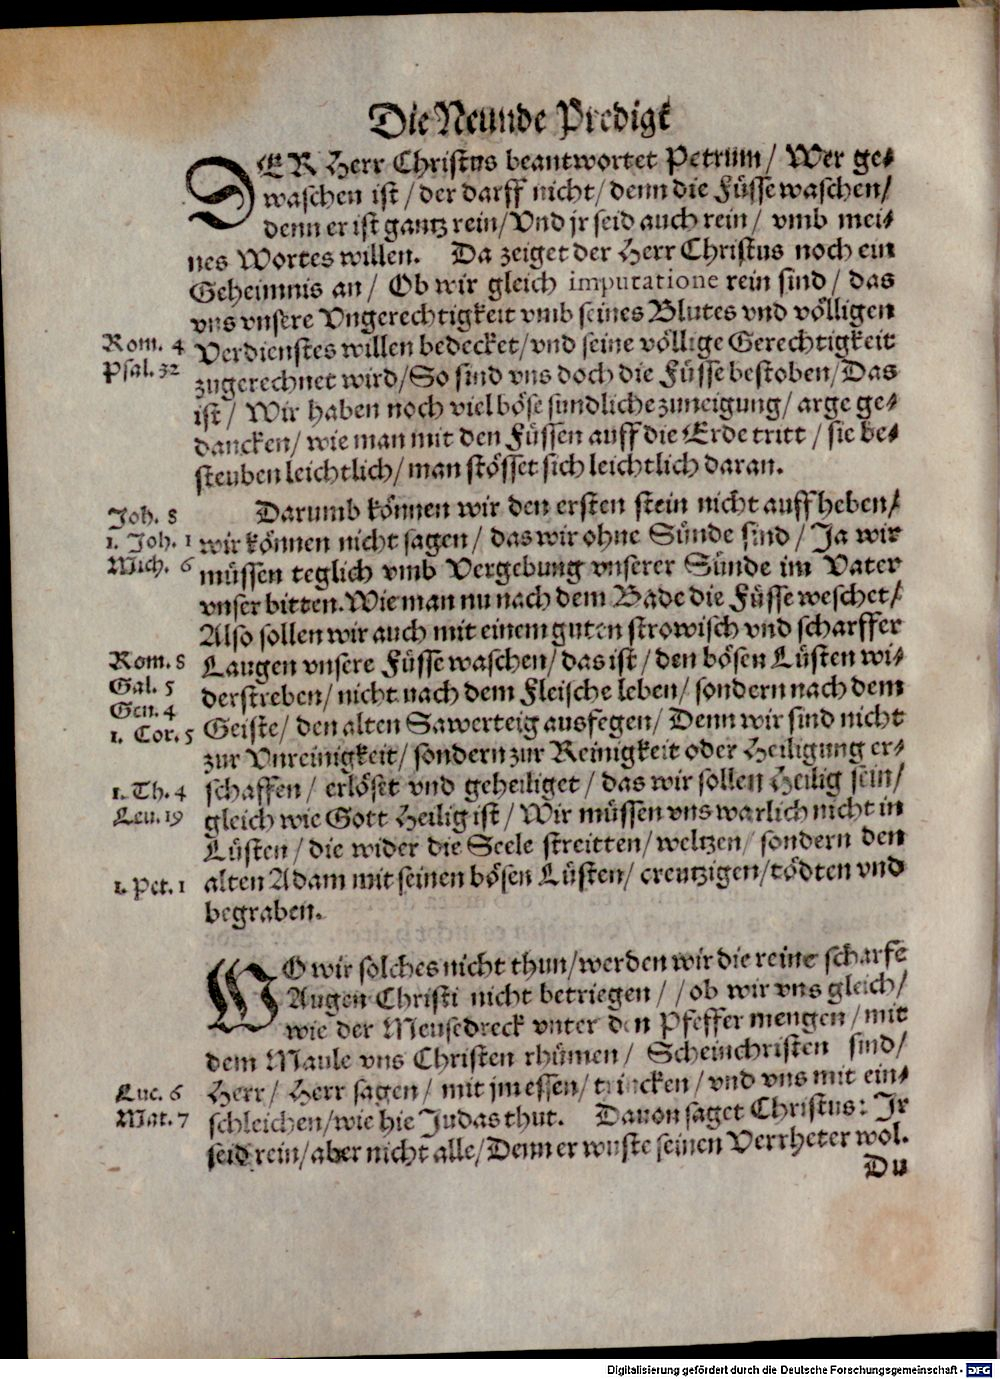 Die Neunde Predigt
DER Herr Christus beantwortet Petrum/ Wer ge-
waschen ist/ der darff nicht/ denn die Füsse waschen/
denn er ist gantz rein/ Vnd jr seid auch rein/ vmb mei-
nes Wortes willen. Da zeiget der Herr Christus noch ein
Geheimnis an/ Ob wir gleich imputatione rein sind/ das
vns vnsere Vngerechtigkeit vmb seines Blutes vnd völligen
Rom. 4
Verdienstes willen bedecket/ vnd seine völlige Gerechtigkeit
Psal. 32
zugerechnet wird/ So sind vns doch die Füsse bestoben/ Das
ist/ Wir haben noch viel böse sündliche zuneigung/ arge ge-
dancken/ wie man mit den Füssen auff die Erde tritt/ sie be-
steuben leichtlich/ man stösset sich leichtlich daran.
Joh. 8
Darumb können wir den ersten stein nicht auffheben/
1. Joh. 1
wir können nicht sagen/ das wir ohne Sünde sind/ Ja wir
Mich. 6
müssen teglich vmb Vergebung vnserer Sünde im Vater
vnser bitten. Wie man nu nach dem Bade die Füsse weschet/
Also sollen wir auch mit einem guten strowisch vnd scharffer
Rom. 8
Laugen vnsere Füsse waschen/ das ist/ den bösen Lüsten wi-
Gal. 5
derstreben/ nicht nach dem Fleische leben/ sondern nach dem
Gen. 4
Geiste/ den alten Sawerteig ausfegen/ Denn wir sind nicht
1. Cor. 5
zur Vnreinigkeit/ sondern zur Reinigkeit oder Heiligung er-
1. Th. 4
schaffen/ erlöset vnd geheiliget/ das wir sollen Heilig sein/
Leu. 19
gleich wie Gott Heilig ist/ Wir müssen vns warlich nicht in
Lüsten/ die wider die Seele streitten/ weltzen/ sondern den
1. Pet. 1
alten Adam mit seinen bösen Lüsten/ creutzigen/ tödten vnd
begraben.
WO wir solches nicht thun/ werden wir die reine scharfe
Augen Christi nicht betriegen/ / ob wir vns gleich/
wie der Meusedreck vnter den Pfeffer mengen/ mit
dem Maule vns Christen rhümen/ Scheinchristen sind/
Luc. 6
Herr/ Herr sagen/ mit jm essen/ trincken/ vnd vns mit ein-
Mat. 7
schleichen/ wie hie Judas thut. Dauon saget Christus: Jr
seid rein/ aber nicht alle/ Denn er wuste seinen Verrheter wol.
Du
Digitalisierung gefördert durch die Deutsche Forschungsgemeinschaft - DFG